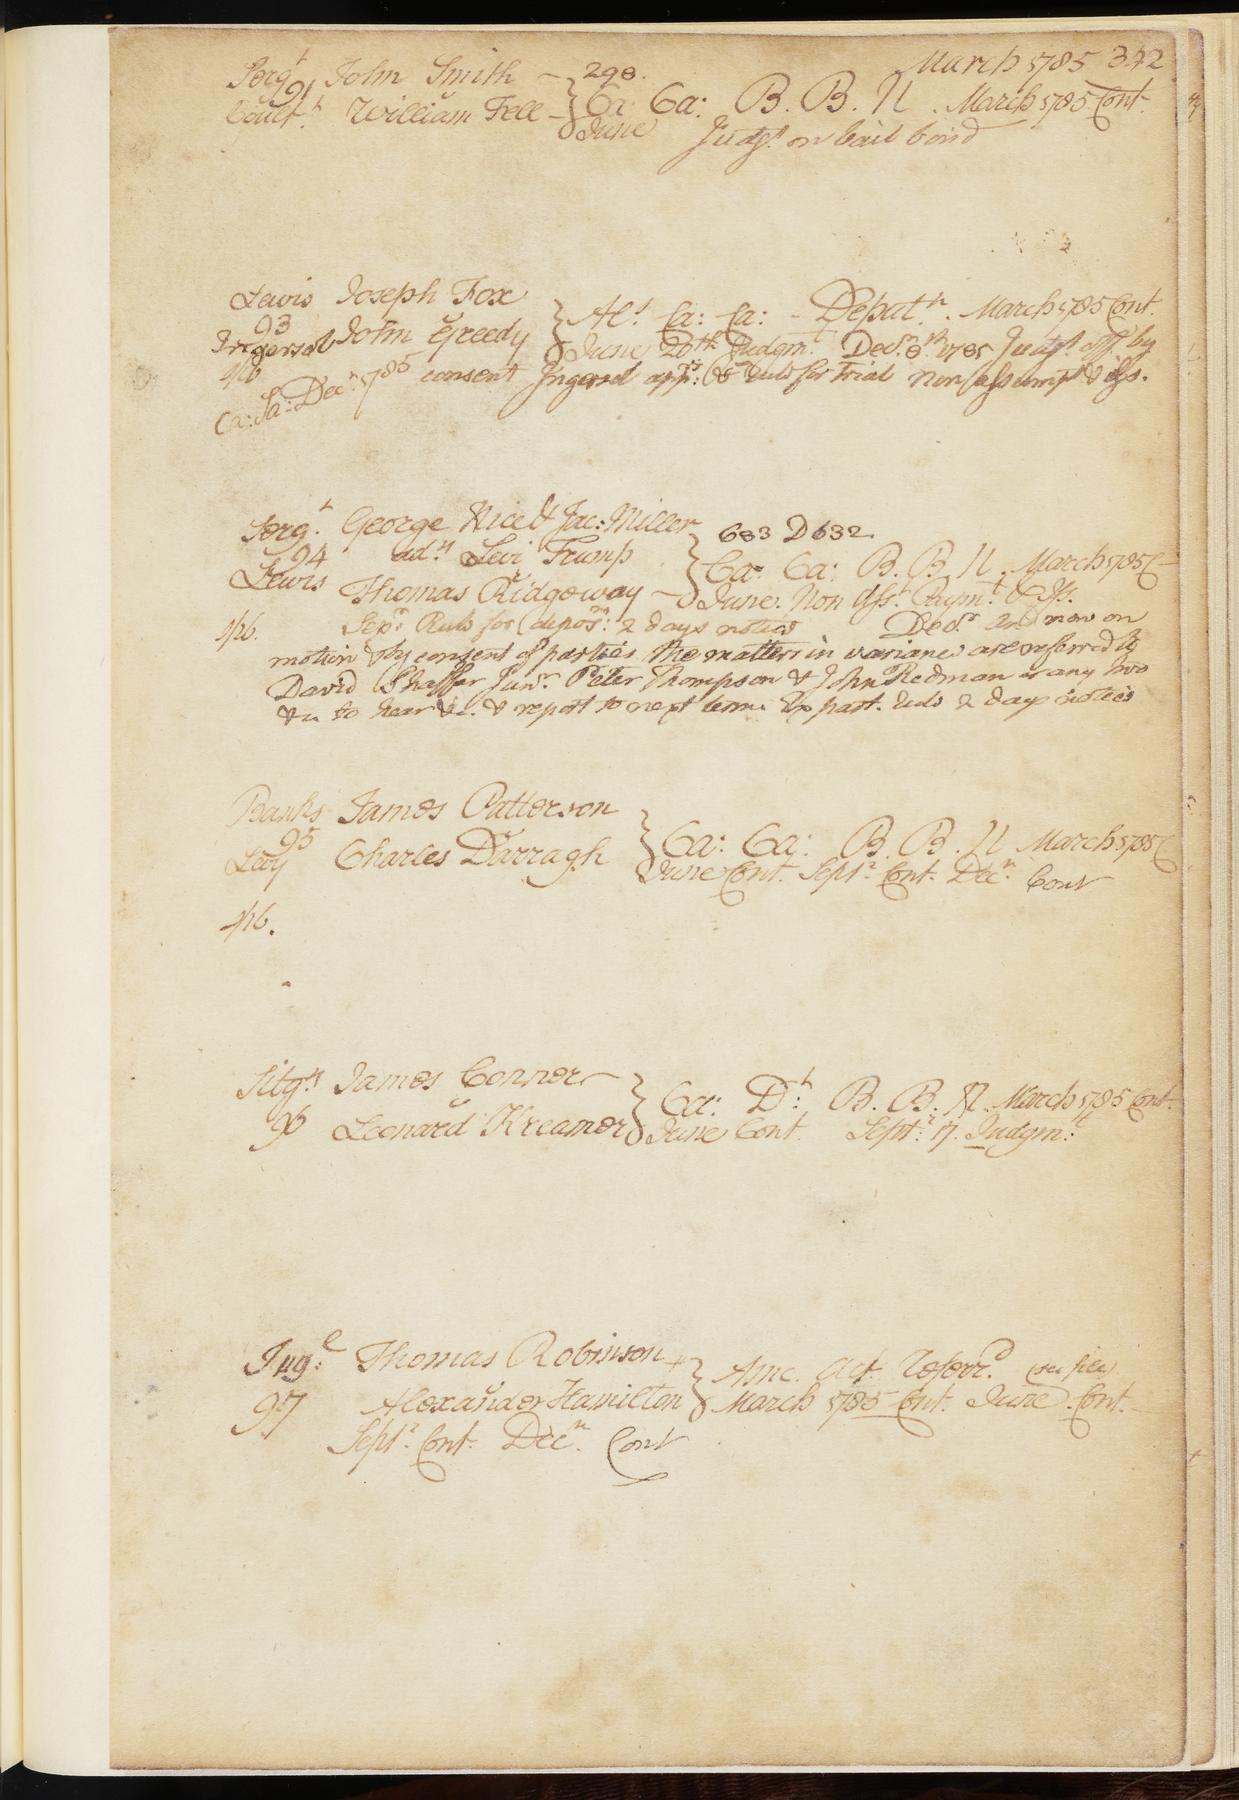 March 1785 342
Serg.t John Smith 298.
91
Court.h William Fell Ca: Ca: B. B. N. March 1785 Cont.
June Judg.t on bail bond
Lewis Joseph Fox
93 Al.s Ca: Ca: - Deput.n. March 1785 Cont.
Ingersol John Greedy June 20th Judgm.t Dec.r 8th 1785 Judg.t off by
4/6 consent Ingersol app.s & rule for trial non assumpt & iss.
Ca: Sa: Dec.r 1785
Serg.t George Rice & Jac: Miller 683 D632
94 ad.rs Levi Trump Ca: Ca: B. B. N. March 1785 C
Lewis Thomas Ridgeway June. Non Ass.t Paym.t & Iss.
4/6. Sep.r Rule for depos.ns 2 days notice Dec.r 2nd now on
motion & by consent of parties the matters in variance are referred to
David Shaffer Jun.r Peter Thompson & John Redman or any two
&c to hear &c. & report to next term Ex part. rule 2 days notice
Banks James Patterson
95 Ca: Ca: B. B. N March 1785 C
Levy Charles Darragh June Cont. Sept.r Cont. Dec.r Cont
4/6.
Sitg.s James Connor Ca: D.t B. B. N. March 1785 Cont.
96 Leonard Kreamer June Cont. Sept.r 17. Judgm.t
Ing.e Thomas Robinson Amc. Act. Referr.d (see file)
97 Alexander Hamilton March 1785 Cont. June Cont.
Sept.r Cont. Dec.r Cont